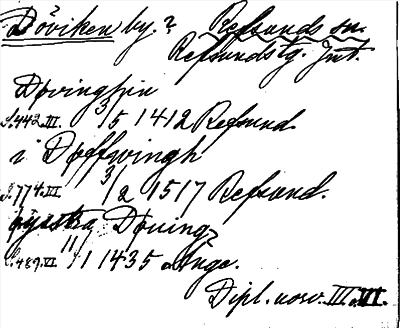 Döviken by.? Refsunds sn.
Refsunds tg. Jmt.
Døvinghin
S.442.III. 3/5 1412 Refsund.
i Døffwingh
S.774.III 3/2 1517 Refsund.
øystra Døuing
S.489.VI. 11/1 1435 Ånge.
Dipl. norv. III. VI.